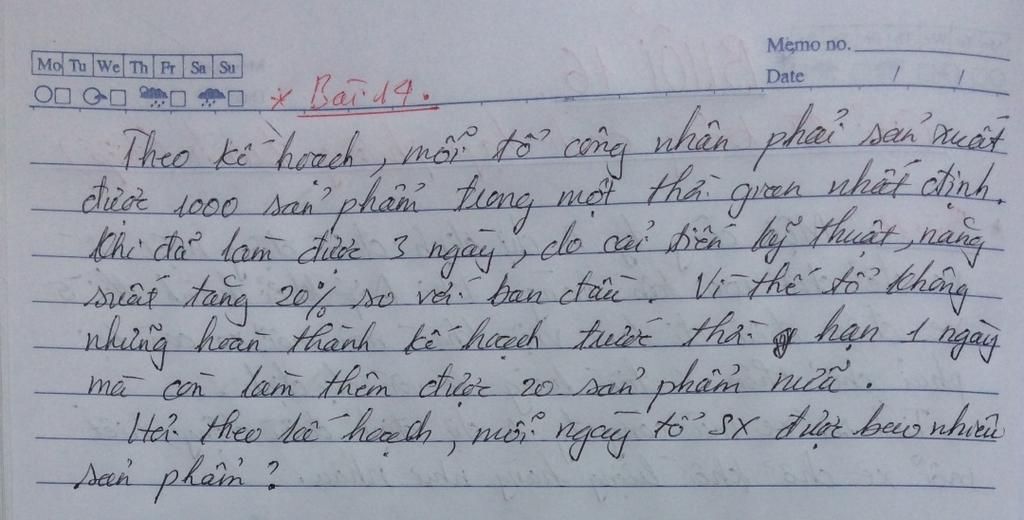 Mo Tu We Th Fr Sa Su
Memo no.
Date / /
* Bài 14.
Theo kế hoạch, mỗi tổ công nhân phải sản xuất
được 1000 sản phẩm trong một thời gian nhất định.
Khi đã làm được 3 ngày, do cải tiến kỹ thuật, năng
suất tăng 20% so với ban đầu. Vì thế tổ không
những hoàn thành kế hoạch trước thời hạn 1 ngày
mà còn làm thêm được 20 sản phẩm nữa.
Hỏi theo kế hoạch, mỗi ngày tổ SX được bao nhiêu
sản phẩm?